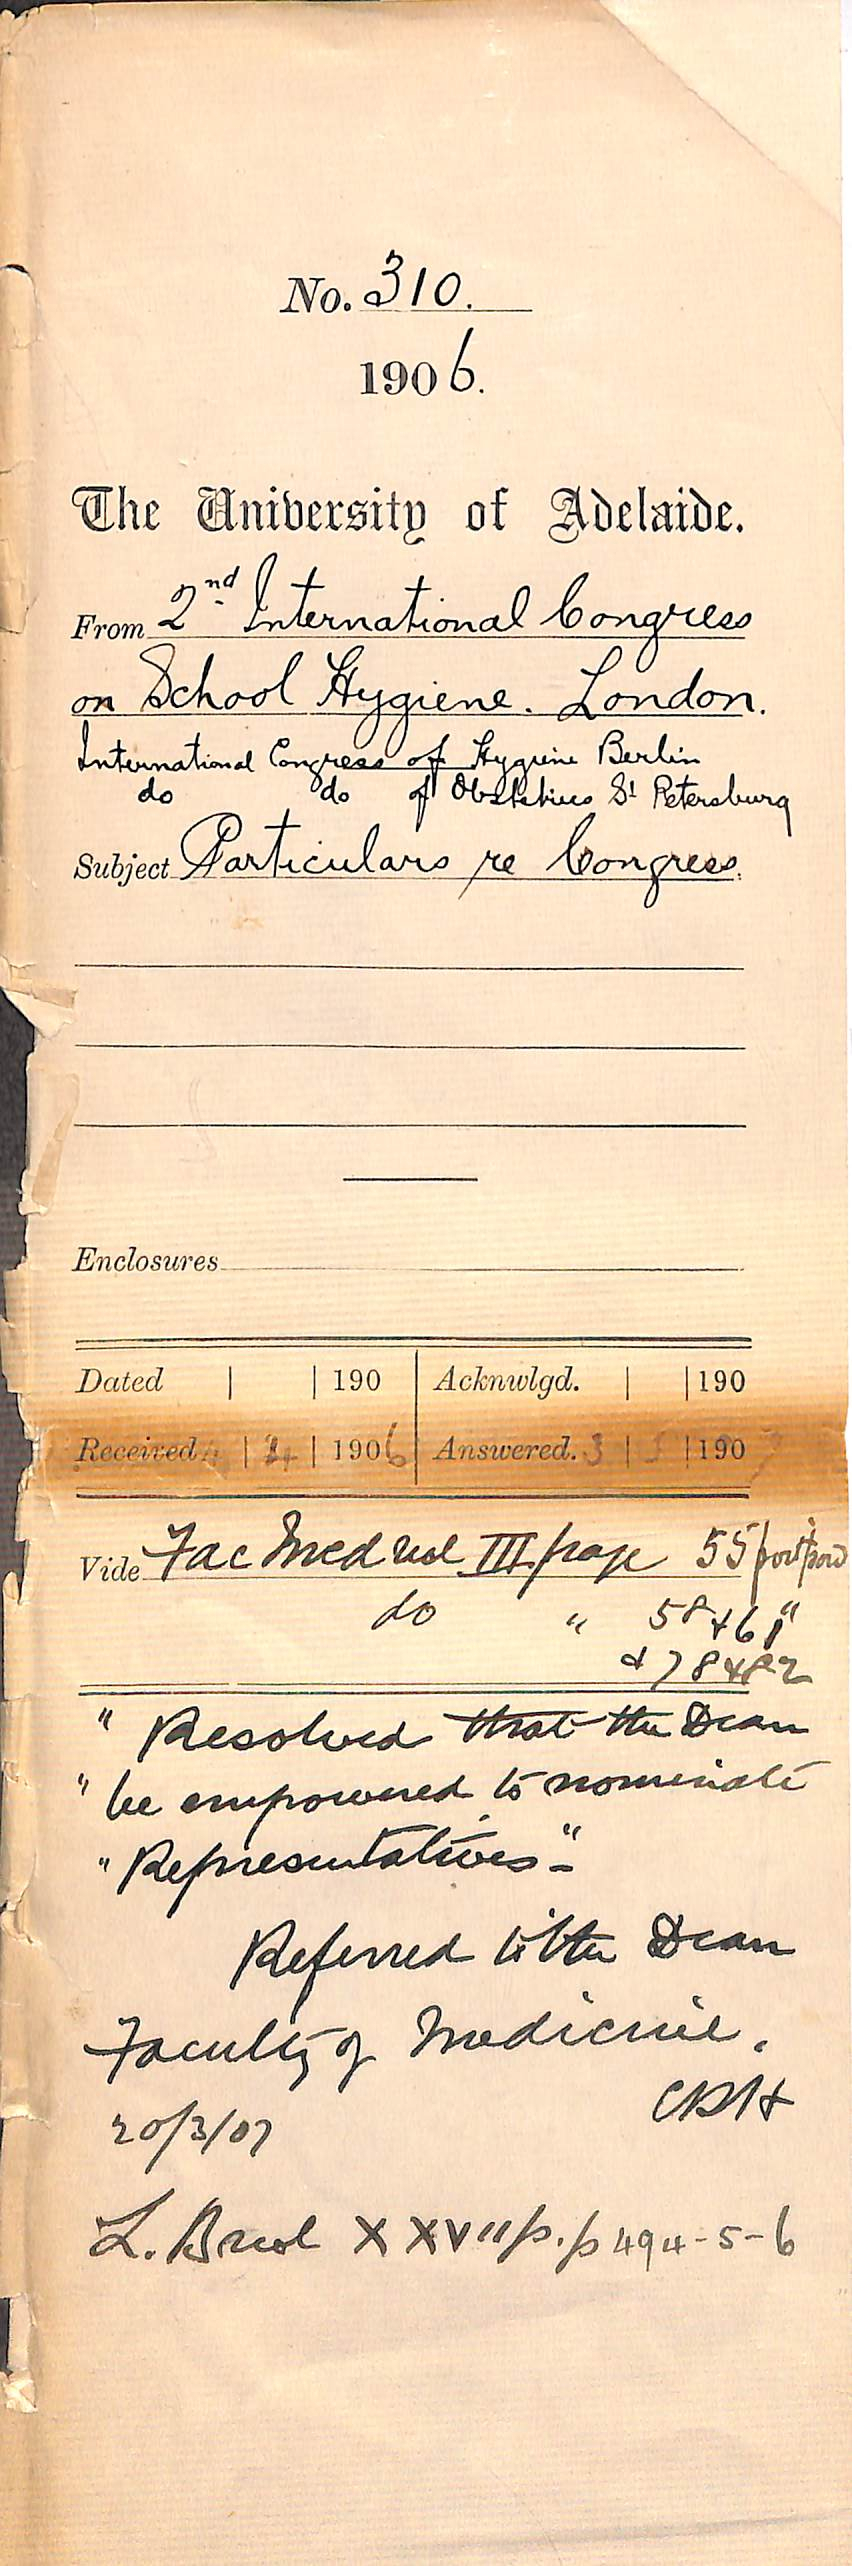 No. 310.
1906.
The University of Adelaide.
From 2nd International Congress
on School Hygiene. London.
International Congress of Hygiene Berlin
do do of Obstetrics St Petersburg
Subject Particulars re Congress.
Enclosures
Dated | | 190 | Acknwlgd. | | 190
Received | | 1906 | Answered. 3 | | 190
Vide Fac Med vol III page 55
do " 58 & 61 "
& 78 & 82
" Resolved that the Dean
" be empowered to nominate
" Representatives "
Referred to the Dean
Faculty of Medicine.
CRH
20/3/07
L. B vol XXVII p. p 494-5-6